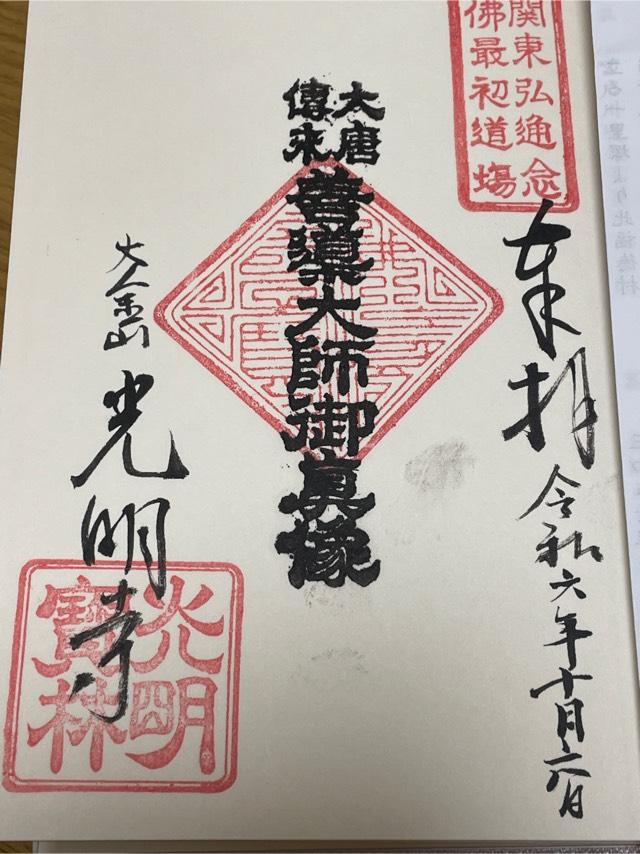 關東弘通念
佛最初道場
奉拝
令和六年十月六日
大唐
傳来
善導大師御真像
大金山
光明寺
光明
寶林